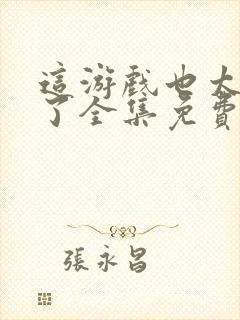 這游戲也太
了全集免費
張永昌